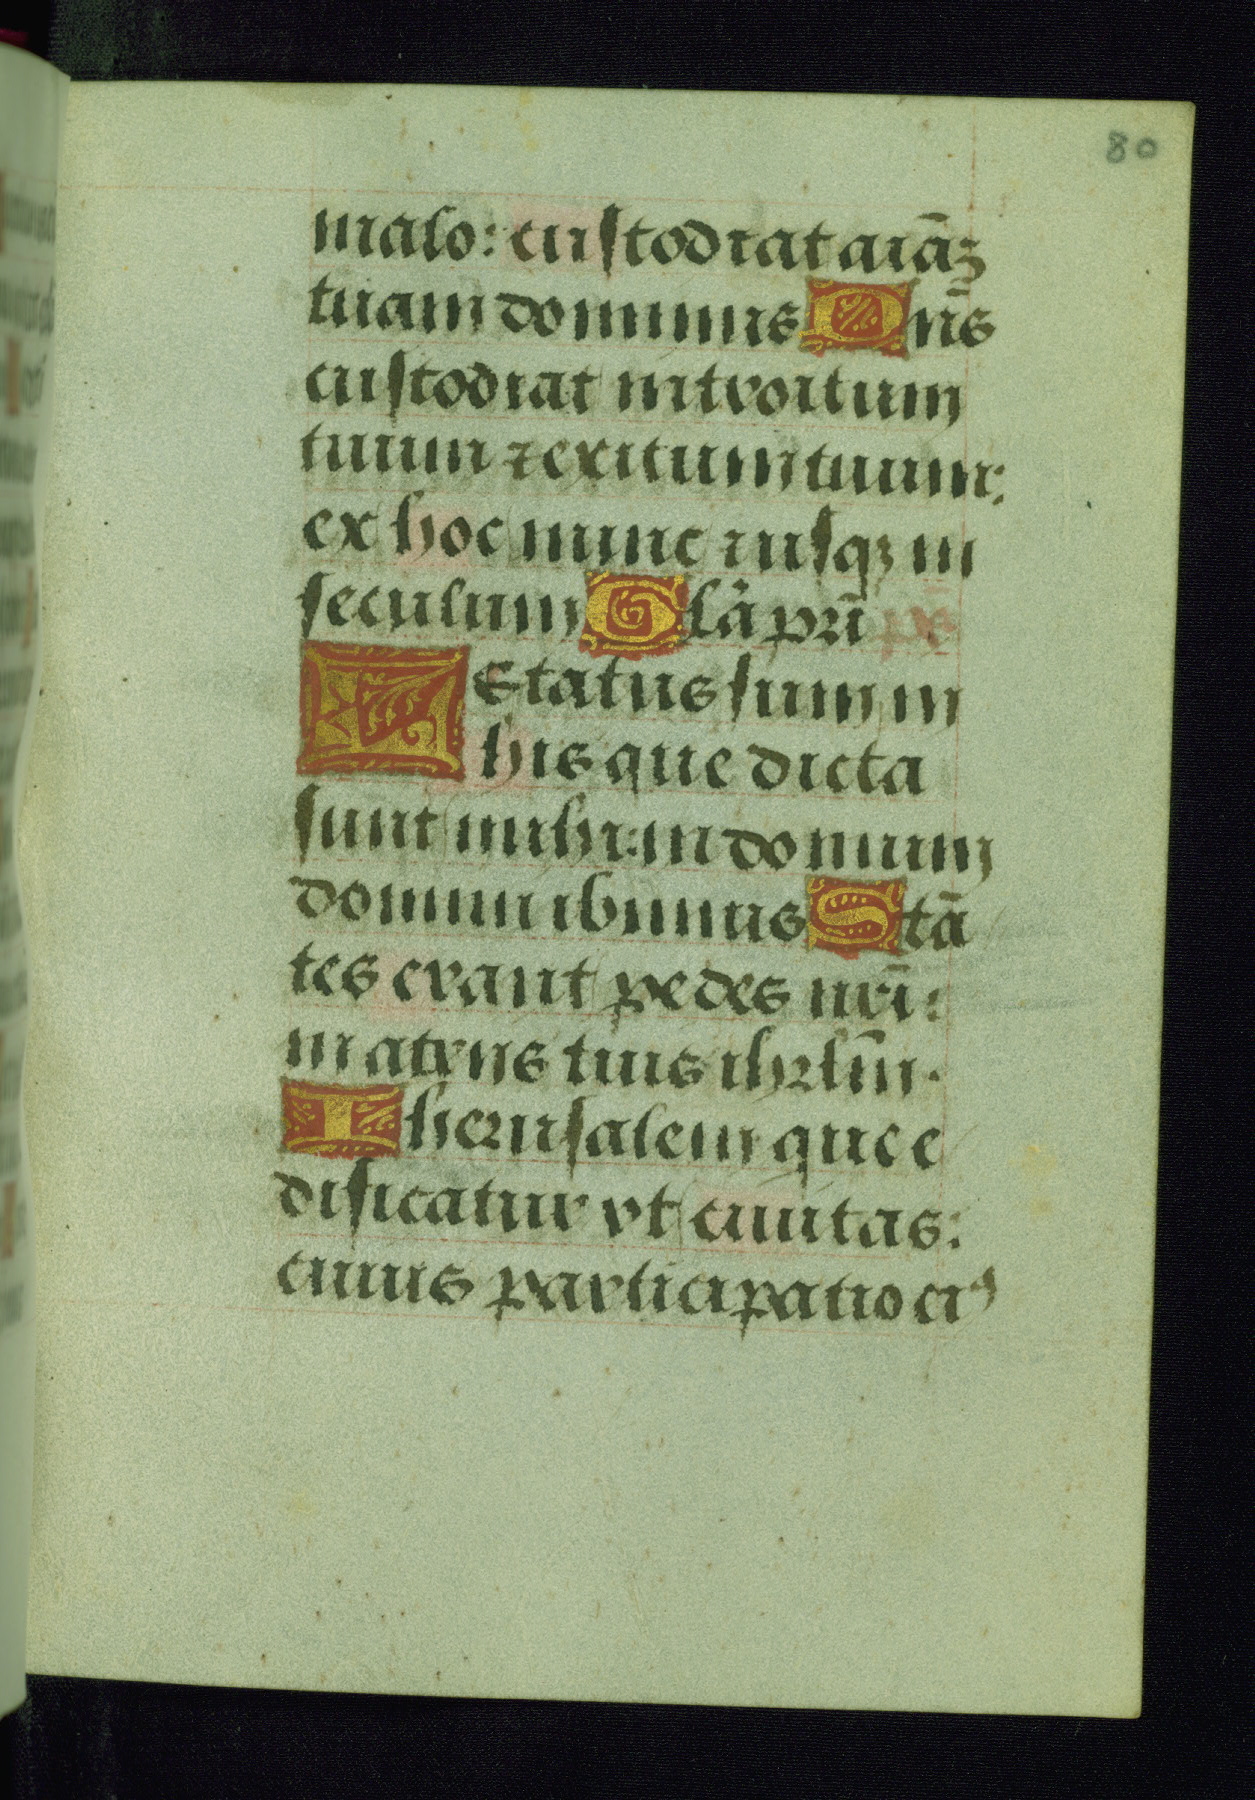 80
malo: custodiat aīaʒ
tuam dominus Dn̄s
custodiat introitum
tuum ⁊ exitum tuum:
ex hoc nunc ⁊ usqʒ in
seculum Gľa p̄ri ps̄
LEtatus sum in
his que dicta
sunt mihi: in domum
domini ibimus Stā
tes erant pedes nr̄i:
in atriis tuis ihrl̄m.
Iherusalem que e
dificatur vt ciuitas:
cuius participatio eiꝰ